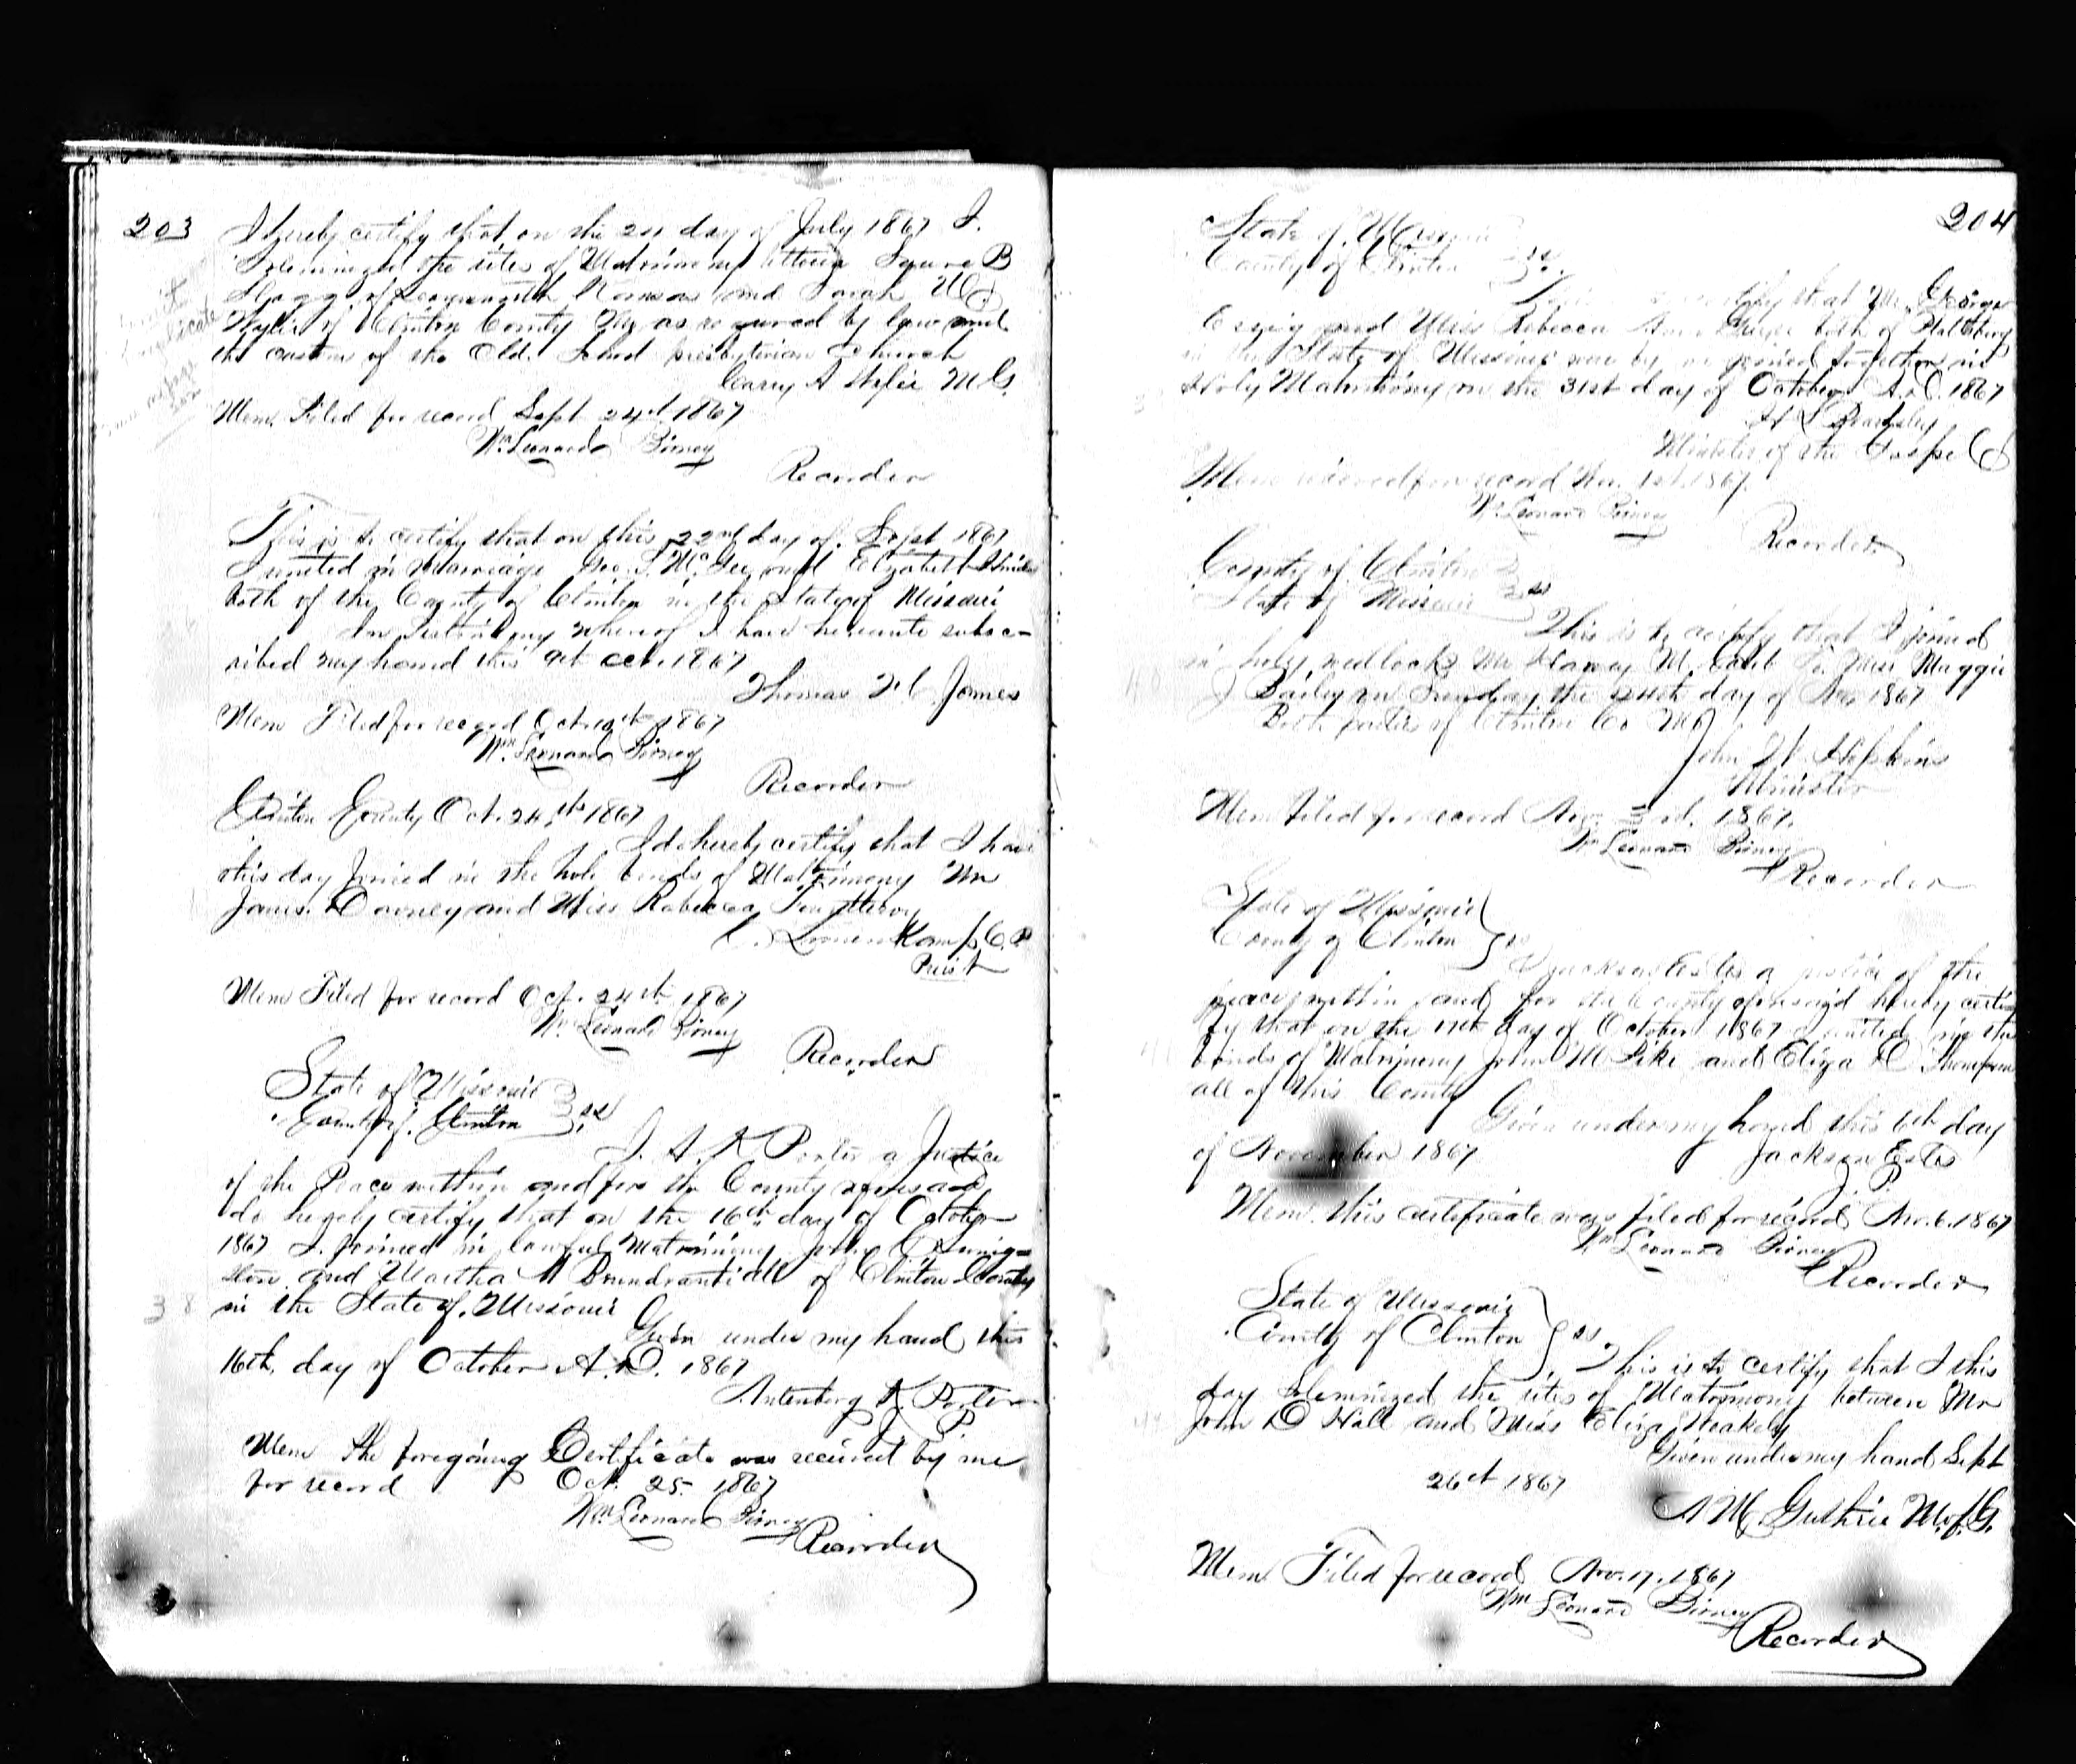 203
I hereby certify that on the 2nd day of July 1867 I.
Solemnized the rites of Matrimony between Squire B
of Kansas and Sarah
Wylie of Clinton County Mo as required by law and
the custom of the Old School presbyterian Church
Carey A Wylie M G.
Mem. Filed for record Sept 24th 1867
Wm Leonard Birney
Recorder
This is to certify that on this 22nd day of Sept 1867
I united in Marriage Geo. T. McGee and Elizabeth
both of the County of Clinton in the State of Missouri
In testimony whereof I have hereunto subsc-
ribed my hand this 9th Oct. 1867
Thomas H C James
Mem Filed for record Oct. 1867
Wm Leonard Birney
Recorder
Clinton County Oct. 24th 1867
I do hereby certify that I have
this day Joined in the hole bonds of Matrimony Mr
James Davney and Miss Rebecca
C. P
Priest
Mem Filed for record Oct. 24th 1867
Wm Leonard Birney
Recorder
State of Missouri
County of Clinton ss
I. A. K Porter a Justice
of the Peace within and for the County aforesaid
do hereby certify that on the 16th day of October
1867 I. joined in lawful Matrimony John
and Martha M all of Clinton County
in the State of Missouri
Given under my hand this
16th day of October A. D. 1867
K Porter
J P
Mem The foregoing Certificate was received by me
for record Oct. 25. 1867
Wm Leonard Birney
Recorder
204
State of Missouri
County of Clinton ss.
This is to certify that Mr. George
and Miss Rebecca Ann both of Plattsburg
in the State of Missouri were by me joined together in
Holy Matrimony on the 31st day of October A. D. 1867
Minister of the Gospel
Mem received for record Nov. 1st. 1867.
Wm Leonard Birney
Recorder
County of Clinton
State of Missouri ss
This is to certify that I joined
in holy wedlock Mr Harvey M. to Miss Maggie
J Bailey on Sunday the day of Nov 1867
Both parties of Clinton Co Mo
John W. Hopkins
Minister
Mem Filed for record Nov. 3rd. 1867.
Wm Leonard Birney
Recorder
State of Missouri
County of Clinton ss
I Jackson Estes a justice of the
peace within and for the County aforesaid hereby certi
fy that on the day of October 1867 I united in the
bonds of Matrimony John M Pike and Eliza D Thompson
all of this County
Given under my hand this 6th day
of November 1867 Jackson Estes
J P
Mem. this certificate was filed for record Nov. 6. 1867
Wm Leonard Birney
Recorder
State of Missouri
County of Clinton ss
This is to certify that I this
day solemnized the rites of Matrimony between Mr
John D Hall and Miss Eliza Weakely
Given under my hand Sept
26th 1867
A M Guthrie M. of. G.
Mem Filed for record Nov. 17. 1867
Wm Leonard Birney
Recorder